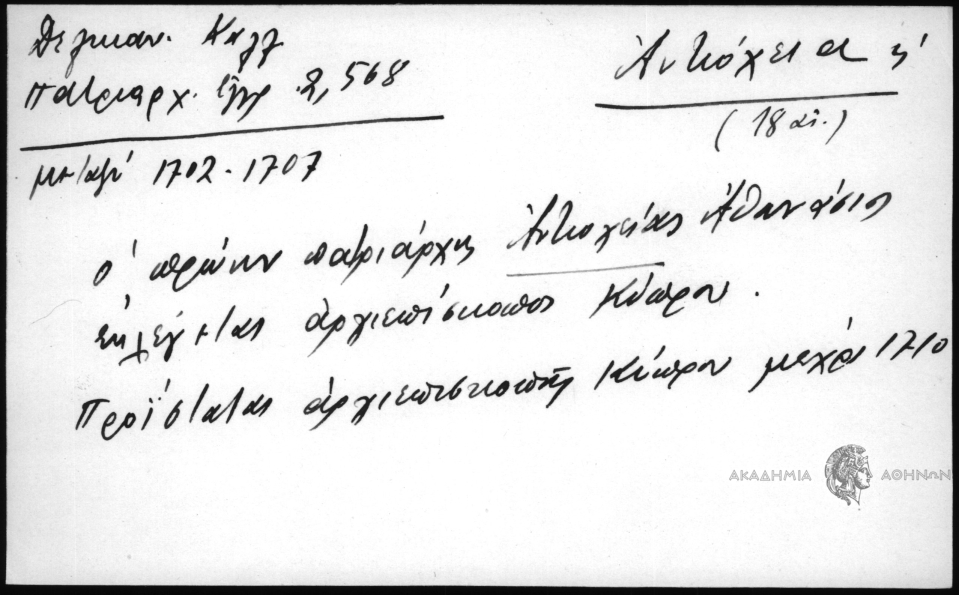 Δελικαν. Καλλ
Πατριαρχ. ἔγγρ. 2,568
Ἀντιόχεια ἡ
(18 αἰ.)
μεταξὺ 1702-1707
ὁ πρώην πατριάρχης Ἀντιοχείας Ἀθανάσιος
ἐκλέγεται ἀρχιεπίσκοπος Κύπρου.
Προΐσταται ἀρχιεπισκοπῆς Κύπρου μέχρι 1710
ΑΚΑΔΗΜΙΑ ΑΘΗΝΩΝ